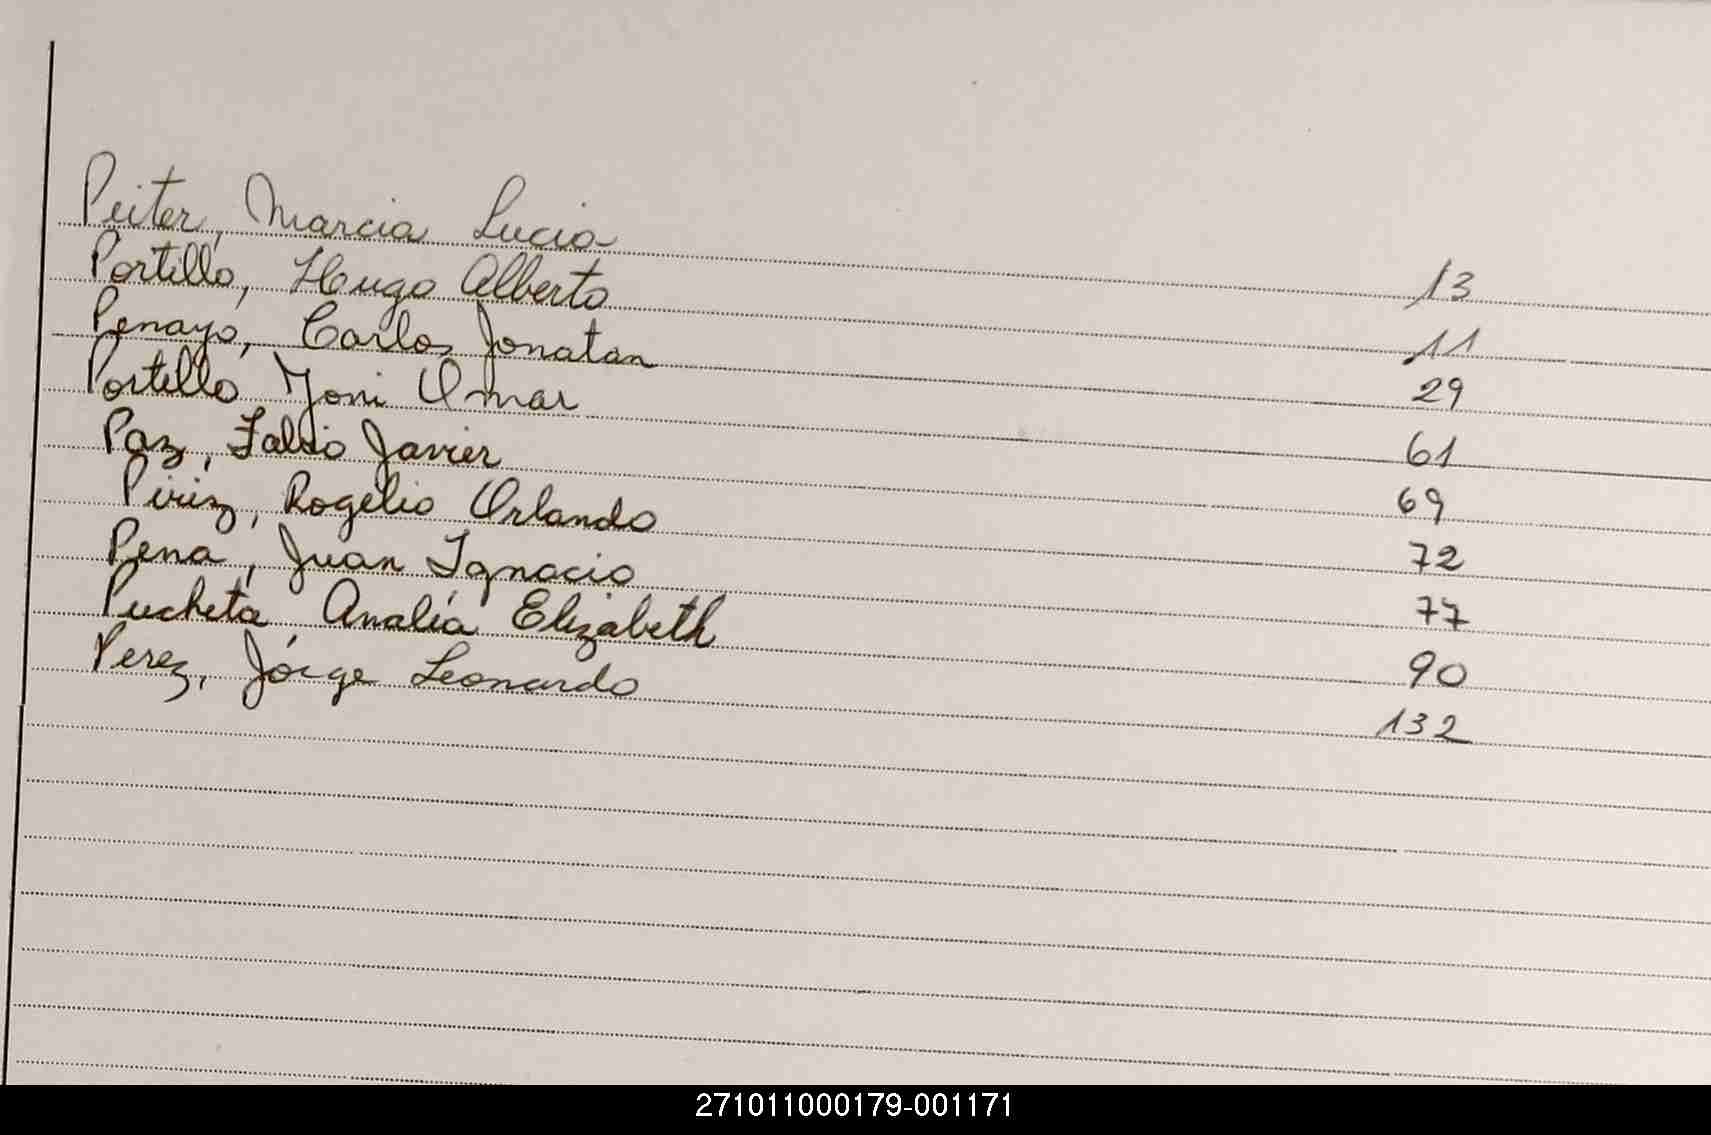 Peiter, Marcia Lucia 13
Portillo, Hugo Alberto 11
Penayo, Carlos Jonatan 29
Portillo Yoni Omar 61
Paz, Fabio Javier 69
Piriz, Rogelio Orlando 72
Pena, Juan Ignacio 77
Pucheta, Analía Elizabeth 90
Perez, Jorge Leonardo 132
271011000179-001171